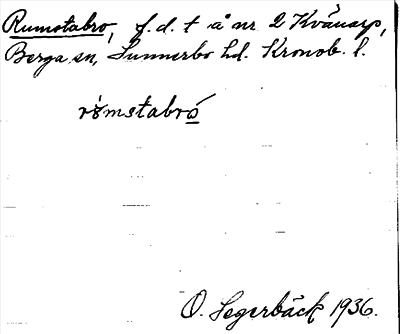 Rumstabro, f. d. t å nr 2 Kvänarp,
Berga sn, Sunnerbo hd. Kronob. l.
rømstabró
O. Segerbäck 1936.